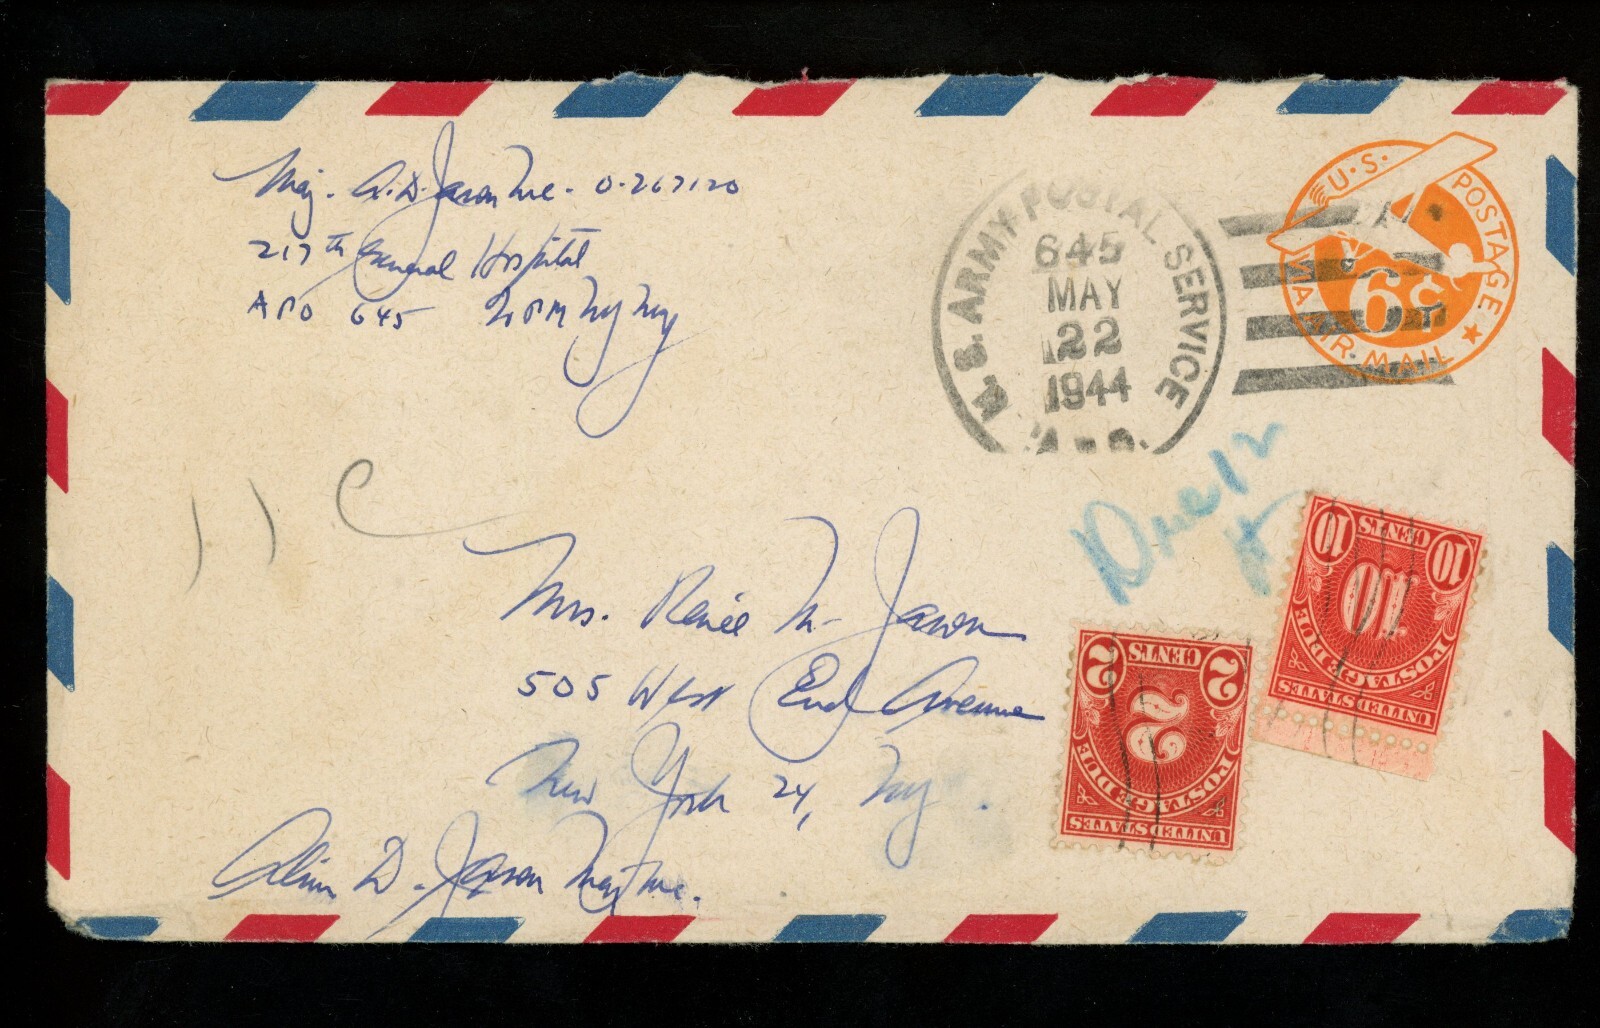 Maj. A. D. Jason MC. O-267120
217th General Hospital
APO 645 % PM NY NY
U.S. ARMY POSTAL SERVICE
645
MAY
22
1944
U.S. POSTAGE
6¢
VIA AIR MAIL
Due 12
Mrs. Renée M. Jason
505 West End Avenue
New York 24, NY.
D. Jason Maj MC.
10 CENTS 10
10
POSTAGE DUE
UNITED STATES
2 CENTS 2
2
POSTAGE DUE
UNITED STATES